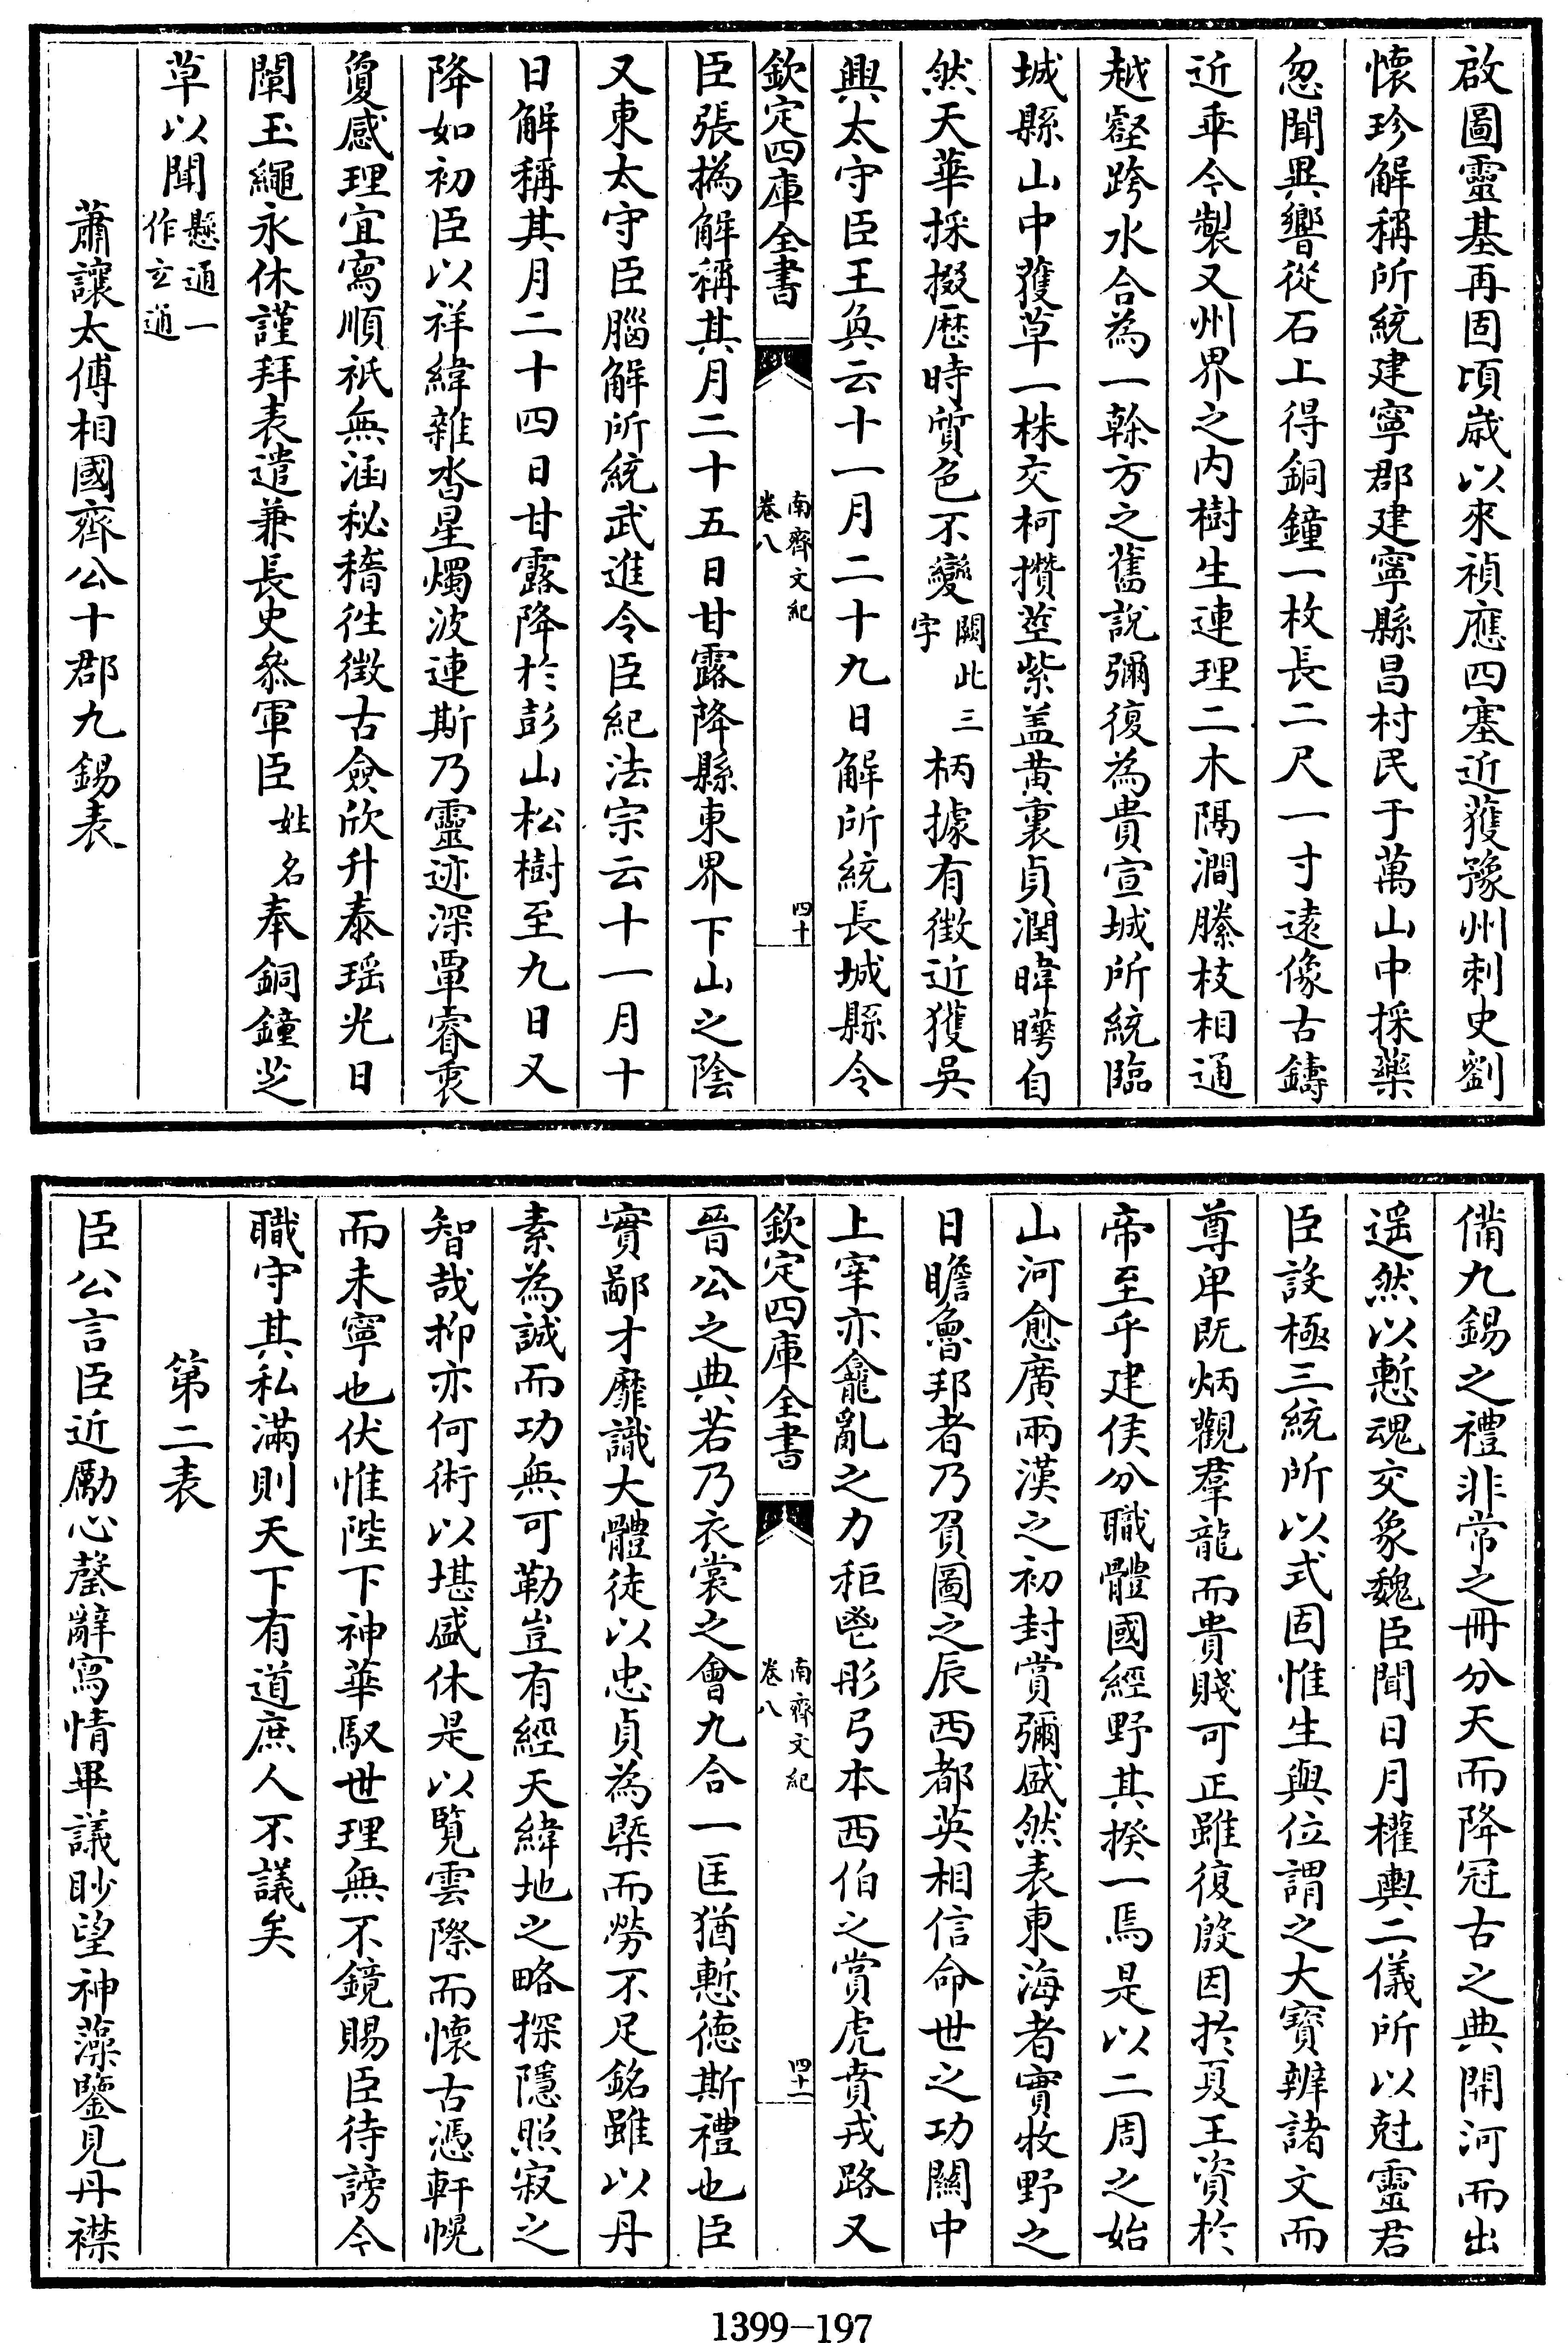 啟圖靈基再固頃歳以來禎應四塞近獲豫州刺史劉
懐珍解稱所統建寧郡建寧縣昌村民于萬山中採藥
忽聞異響從石上得銅鐘一枚長二尺一寸遠像古鑄
近乖今製又州界之内樹生連理二木隔澗縢枝相通
越壑跨水合為一榦方之舊說彌復為貴宣城所統臨
城縣山中獲草一株交柯攢莖紫盖黄裏貞潤暐曄自
然天華採掇厯時質色不變闕此三字柄據有徴近獲吳
興太守臣王奐云十一月二十九日解所統長城縣令
欽定四庫全書
南齊文紀
卷八
四十
臣張撝解稱其月二十五日甘露降縣東界下山之陰
又東太守臣腦解所統武進令臣紀法宗云十一月十
日解稱其月二十四日甘露降於彭山松樹至九日又
降如初臣以祥緯雜沓星燭波連斯乃靈迹深覃睿衷
夐感理宜寫順祇無涵秘稽徃徴古僉欣升泰瑶光日
闡玉繩永休謹拜表遣兼長史叅軍臣姓名奉銅鐘芝
草以聞懸通一作玄通
蕭讓太傅相國齊公十郡九錫表
備九錫之禮非常之冊分天而降冠古之典開河而出
遥然以慙魂交象魏臣聞日月權輿二儀所以尅靈君
臣設極三統所以式固惟生與位謂之大寳辨諸文而
尊卑既炳觀羣龍而貴賤可正雖復殷因於夏王資於
帝至乎建侯分職體國經野其揆一焉是以二周之始
山河愈廣兩漢之初封賞彌盛然表東海者實牧野之
日瞻魯邦者乃負圖之辰西都英相信命世之功關中
上宰亦龕亂之力秬鬯彤弓本西伯之賞虎賁戎路又
欽定四庫全書
南齊文紀
卷八
四十一
晉公之典若乃衣裳之會九合一匡猶慙徳斯禮也臣
實鄙才靡識大體徒以忠貞為槩而勞不足銘雖以丹
素為誠而功無可勒豈有經天緯地之略探隱照寂之
智哉抑亦何術以堪盛休是以覽雲際而懐古憑軒幌
而未寧也伏惟陛下神華馭世理無不鏡賜臣待謗今
職守其私滿則天下有道庶人不議矣
第二表
臣公言臣近勵心罄辭寫情畢議眇望神藻鑒見丹襟
1399-197